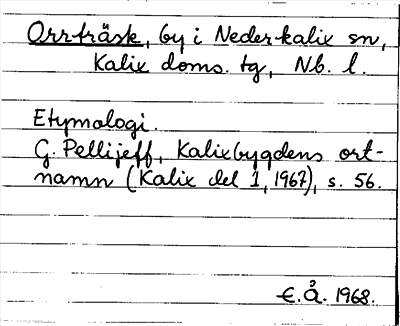 Orrträsk, by i Nederkalix sn,
Kalix doms. tg, Nb. l.
Etymologi.
G. Pellijeff, Kalixbygdens ort-
namn (Kalix del 1, 1967), s. 56.
E.Å. 1968.